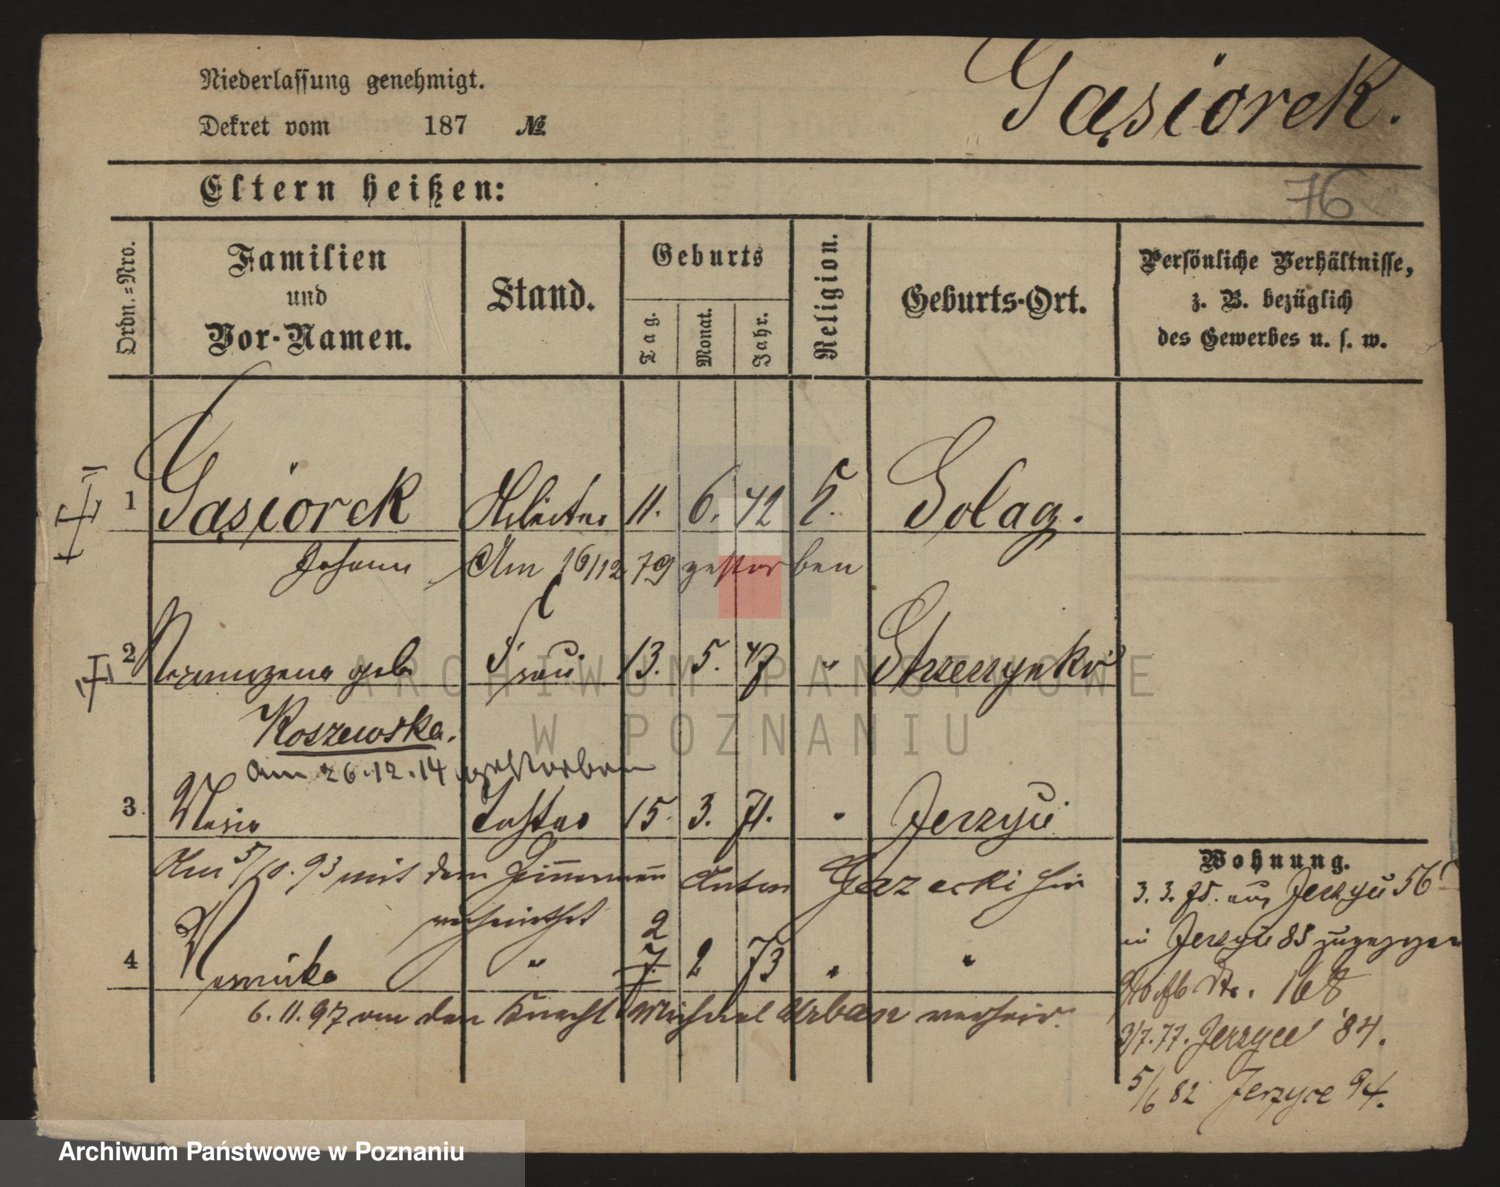 Niederlassung genehmigt.
Dekret vom 187 №
Gąsiorek.
Eltern heißen:
76
Ordn.-Nro.
Familien
und
Vor-Namen.
Stand.
Geburts
Tag.
Monat.
Jahr.
Religion.
Geburts-Ort.
Persönliche Verhältnisse,
z. B. bezüglich
des Gewerbes u. s. w.
1 Gąsiorek Arbeiter 11. 6. 42 k. Golaz.
Johann Am 16/12 79 gestorben
2 geb. Frau 13. 5. 47 "
Koszewska.
am 26.12.14 gestorben
3 Maria Tochter 15. 3. 71. " Jerzyce
Am 5/10. 93 mit dem Zimmermann Anton hier
verheirathet
4 " 2 7. 2 73 " "
6.11.97 an den Knecht Michael Urban verheir.
Wohnung.
3.3.75. aus Jerzyce 56
in Jerzyce 85 zugezogen
168
2/7.77. Jerzyce 84.
5/6 82 Jerzyce 94.
ARCHIWUM PAŃSTWOWE
W POZNANIU
Archiwum Państwowe w Poznaniu